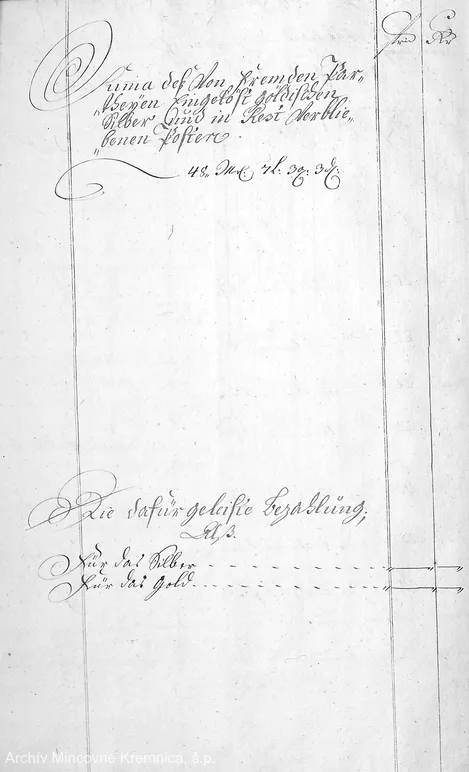 Frn Kr
Suma des Von Fremden Par„
„theyen Eingelöst göldischen
Silber Und in Rest Verblie„
„benen Posten.
48„ Mr: 7 l: 3 q: 3 d:
Die dafür geleiste Bezahlung,
Alß.
Für das Silber
Für das Gold
Archív Mincovne Kremnica, š.p.